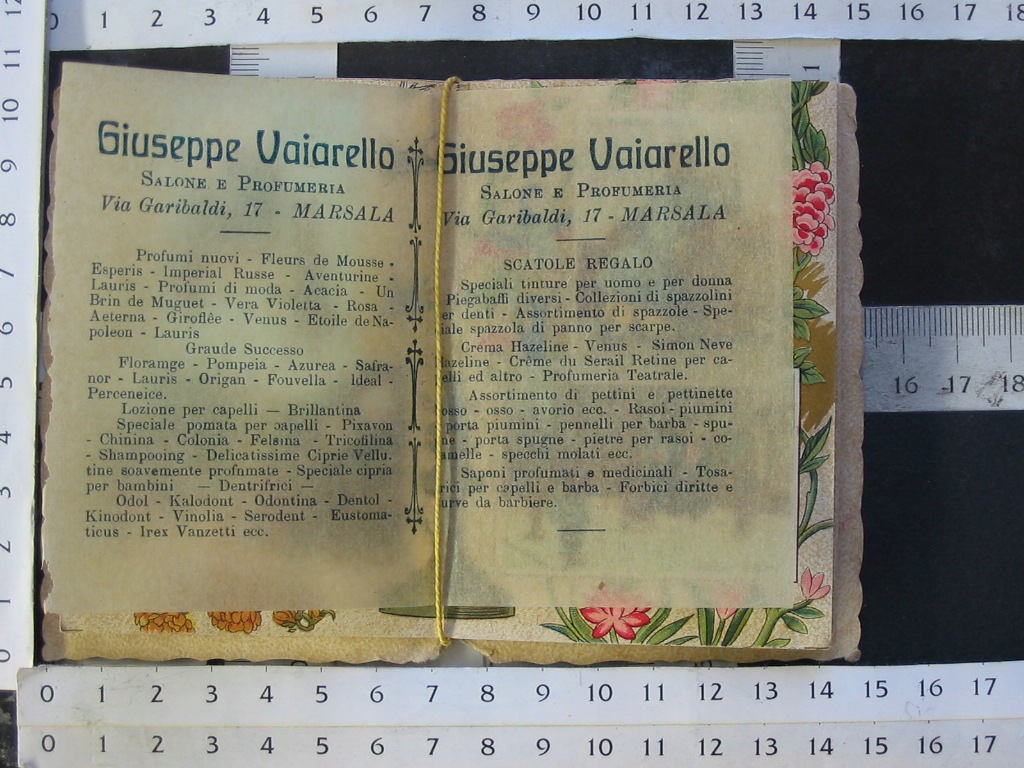 Giuseppe Vaiarello
Salone e Profumeria
Via Garibaldi, 17 - MARSALA
Profumi nuovi - Fleurs de Mousse -
Esperis - Imperial Russe - Aventurine -
Lauris - Profumi di moda - Acacia - Un
Brin de Muguet - Vera Violetta - Rosa -
Aeterna - Giroflêe - Venus - Etoile de Na-
poleon - Lauris
Graude Successo
Floramge - Pompeia - Azurea - Safra-
nor - Lauris - Origan - Fouvella - Ideal -
Perceneice.
Lozione per capelli — Brillantina
Speciale pomata per capelli - Pixavon
- Chinina - Colonia - Felsina - Tricofilina
- Shampooing - Delicatissime Ciprie Vellu.
tine soavemente profnmate - Speciale cipria
per bambini — Dentrifrici —
Odol - Kalodont - Odontina - Dentol -
Kinodont - Vinolia - Serodent - Eustoma-
ticus - Irex Vanzetti ecc.
Giuseppe Vaiarello
Salone e Profumeria
Via Garibaldi, 17 - MARSALA
SCATOLE REGALO
Speciali tinture per uomo e per donna
Piegabaffi diversi - Collezioni di spazzolini
er denti - Assortimento di spazzole - Spe-
iale spazzola di panno per scarpe.
Crema Hazeline - Venus - Simon Neve
Hazeline - Crême du Serail Retine per ca-
elli ed altro - Profumeria Teatrale.
Assortimento di pettini e pettinette
osso - osso - avorio ecc. - Rasoi - piumini
porta piumini - pennelli per barba - spu-
ne - porta spugne - pietre per rasoi - co-
melle - specchi molati ecc.
Saponi profumati e medicinali - Tosa-
rici per capelli e barba - Forbici diritte e
urve da barbiere.
0 1 2 3 4 5 6 7 8 9 10 11 12 13 14 15 16 17 18
12
11
10
9
8
7
6
5
4
3
2
1
0
16 17 18
0 1 2 3 4 5 6 7 8 9 10 11 12 13 14 15 16 17
0 1 2 3 4 5 6 7 8 9 10 11 12 13 14 15 16 17